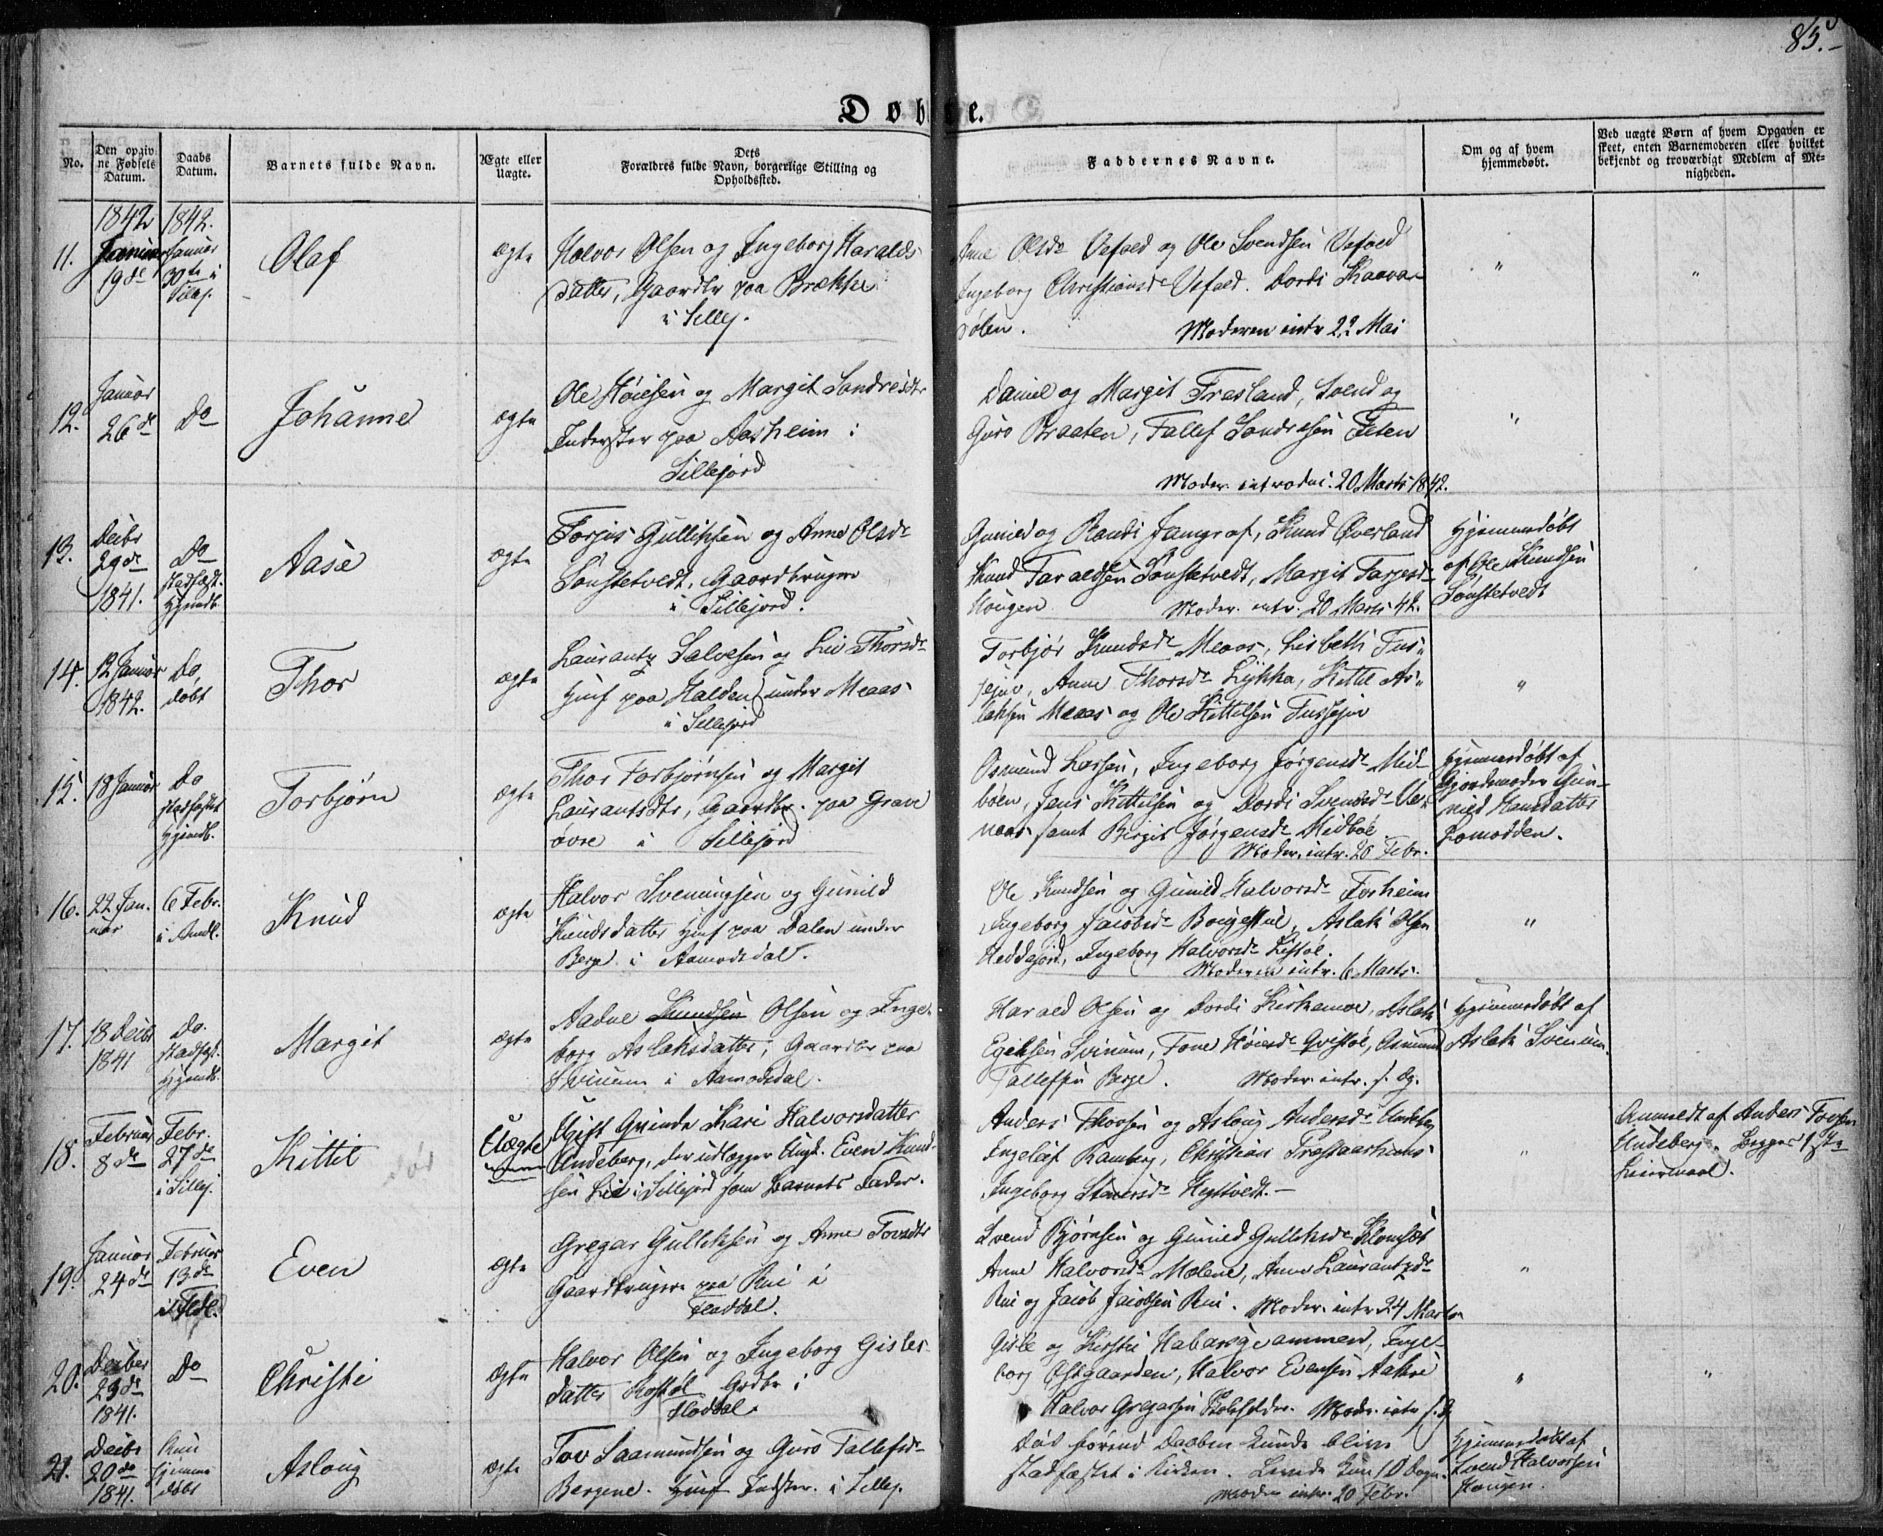 85.
Døbte.
No.
Den opgiv
ne Fødsels
Datum.
Daabs
Datum.
Barnets fulde Navn.
Ægte eller
Uægte.
Dets
Forældres fulde Navn, borgerlige Stilling og
Opholdssted.
Faddernes Navne.
Om og af hvem
hjemmedøbt.
Ved uægte Børn af hvem Opgaven er
skeet, enten Barnemoderen eller hvilket
bekjendt og troværdigt Medlem af Me-
nigheden.
11.
1842
Januar
19de
1842.
Januar
30te i
Sillej.
Olaf
ægte
Halvor Olsen og Ingeborg Haralds
datter, Gaardbr paa Brække
i Sillej.
Anne Olsdr Vefald og Ole Svendsen Vefald
Ingeborg Christiansdr Vefald. Dordi Haava-
dølen. Moderen intr 22 Mai
"
"
12.
Januar
26de
Do
Johanne
ægte
Ole Høiesen og Margit Sondresdtr
Inderster paa Aasheim i
Sillejord
Daniel og Margit Fresland, Svend og
Guro Braaten, Tallef Sondresen Teten
Moder. introduc. 20 Marts 1842.
"
13.
Decbr
29de
1841.
Do
stadfæst.
Hjemdb.
Aase
ægte
Torjus Gulliksen og Anne Olsdr
Sønstetvedt, Gaardbrugere
i Sillejord.
Gunild og Randi Jamgraf, Knud Øverland
Knud Taraldsen Sønstetvedt, Margit Tarjesdr
Haugen Moder. intr. 20 Marts 42.
Hjemmedøbt
af Ole Knudsen
Sønstetvedt
14.
12 Januar
1842.
Do
døbt
Thor
ægte
Laurantz Salvesen og Liv Thorsdr
Hmf paa Halden under Meaas
i Sillejord
Torbjør Knudsdr Meaas, Lisbeth Fus-
sejuv, Anne Thorsdr Lykka, Kittil As-
laksen Meaas og Ole Kittelsen Fussejuv
"
15.
18 Januar
Do
stadfæstet
Hjemdb.
Torbjørn
ægte
Thor Torbjørnsen og Margit
Laurantsdtr, Gaardbr. paa Grave
øvre i Sillejord
Osmund Larsen, Ingeborg Jørgensdr Mid-
bøen, Jens Kittelsen og Dordi Svendsdr
samt Bergit Jørgensdr Midbøe
Moder. intr. 20 Febr.
Hjemmedøbt af
Gjordmoder Gun-
nild Hansdatter
Lomodden.
16.
22 Jan-
uar
6 Febr.
i Amdl.
Knud
ægte
Halvor Sveinungsen og Gunild
Knudsdatter Hmf paa Dalen under
Berge i Aamodsdal.
Ole Knudsen og Gunild Halvorsdr Forheim
Ingeborg Jacobsdr Borgestul, Aslak Olsen
Heddejord, Ingeborg Halvorsdr Lissøl.
Moderen intr. 6 Marts.
"
17.
18 Decbr
1841
Do.
stadfæst.
Hjemdb.
Margit
ægte
Aadne Knudsen Olsen og Inge-
borg Aslaksdatter, Gaardbr paa
Svinum i Aamodsdal.
Harald Olsen og Dordi Kirkemoe, Aslak
Egilsen Svinum, Tone Høiesdr Qvistøl, Osmund
Tallefsen Berge. Moder. intr. s. Dg.
Hjemmedøbt af
Aslak Svinum.
18.
Februar
8de
Febr.
27de
i Sillej.
Kittil
Uægte
Ugift Qvinde Kari Halvorsdatter
Undeberg, der udlægger Ungk. Even Knud-
sen Lid i Sillejord som Barnets Fader.
Anders Thovsen og Aslaug Andersdr Undeberg
Ingeleif Ramberg, Christian
Ingeborg Steversdr Heggtvedt. -
"
Anmeldt af Anders Tovsen
Undeberg. Begges 1ste
Leiermaal.
19.
Januar
24de
Februar
13de
i Fldl.
Even
ægte
Gregar Gulliksen og Anne Tovsdtr
Gaardbrugere paa Rui i
Fladdal.
Svend Bjørnsen og Gunild Gulliksdr Klomset
Anne Halvorsdr Molene, Anne Laurantzdr
Rui og Jacob Jacobsen Rui. Moder. intr 24 Marts
"
20.
Decber
23de
1841.
Do
Christi
ægte
Halvor Olsen og Ingeborg Gisles
datter Kostøl Grdbr i
Fladdal.
Gisle og Kirstie, Inge-
borg Østgaarden, Halvor Evensen Aakre
Halvor Gregarsen. Moder. intr s. Dg
"
"
21.
Decbr
20de
1841.
Kun
hjemme
døbt
Aslaug
ægte
Tov Saamundsen og Guro Tallefsdr
Bergene. Hmf Indster. i Sillej.
Død førend Daaben kunde blive
stadfæstet i Kirken. Levede kun 10 Dage.
Moder intr. 20 Febr.
Hjemmedøbt af
Svend Halvorsen
Haugen.